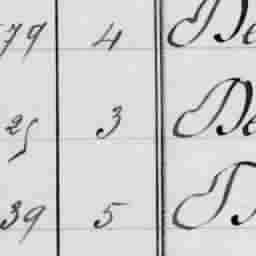 79 4 De
25 3 De
39 5